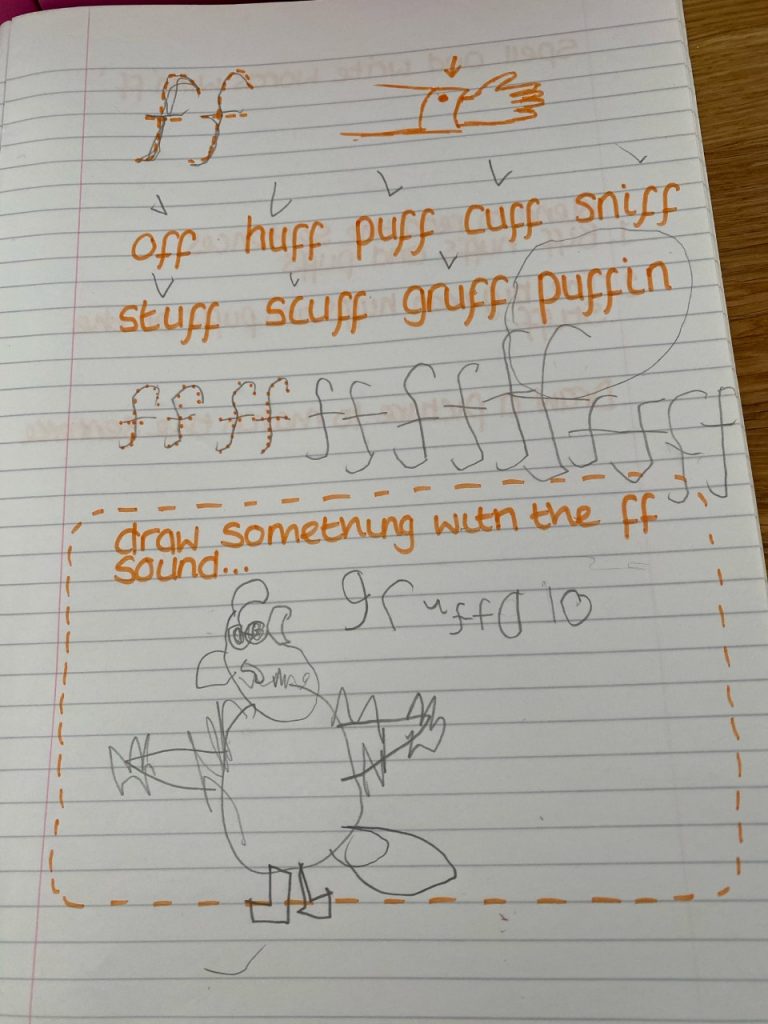 ff
off huff puff cuff sniff
stuff scuff gruff puffin
ff ff ff ff ff ff ff
draw something with the ff
sound...
gruffalo